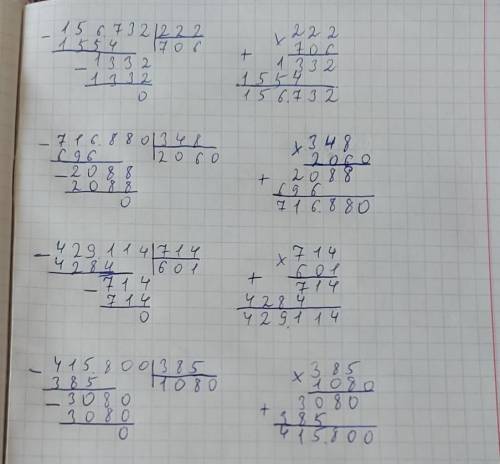 - 156.732 | 222
1554 | 706
- 1332
1332
0
× 222
706
+ 1332
1554
156.732
- 716.880 | 348
696 | 2060
- 2088
2088
0
× 348
2060
+ 2088
696
716.880
- 429.114 | 714
4284 | 601
- 714
714
0
× 714
601
+ 714
4284
429.114
- 415.800 | 385
385 | 1080
- 3080
3080
0
× 385
1080
+ 3080
385
415.800